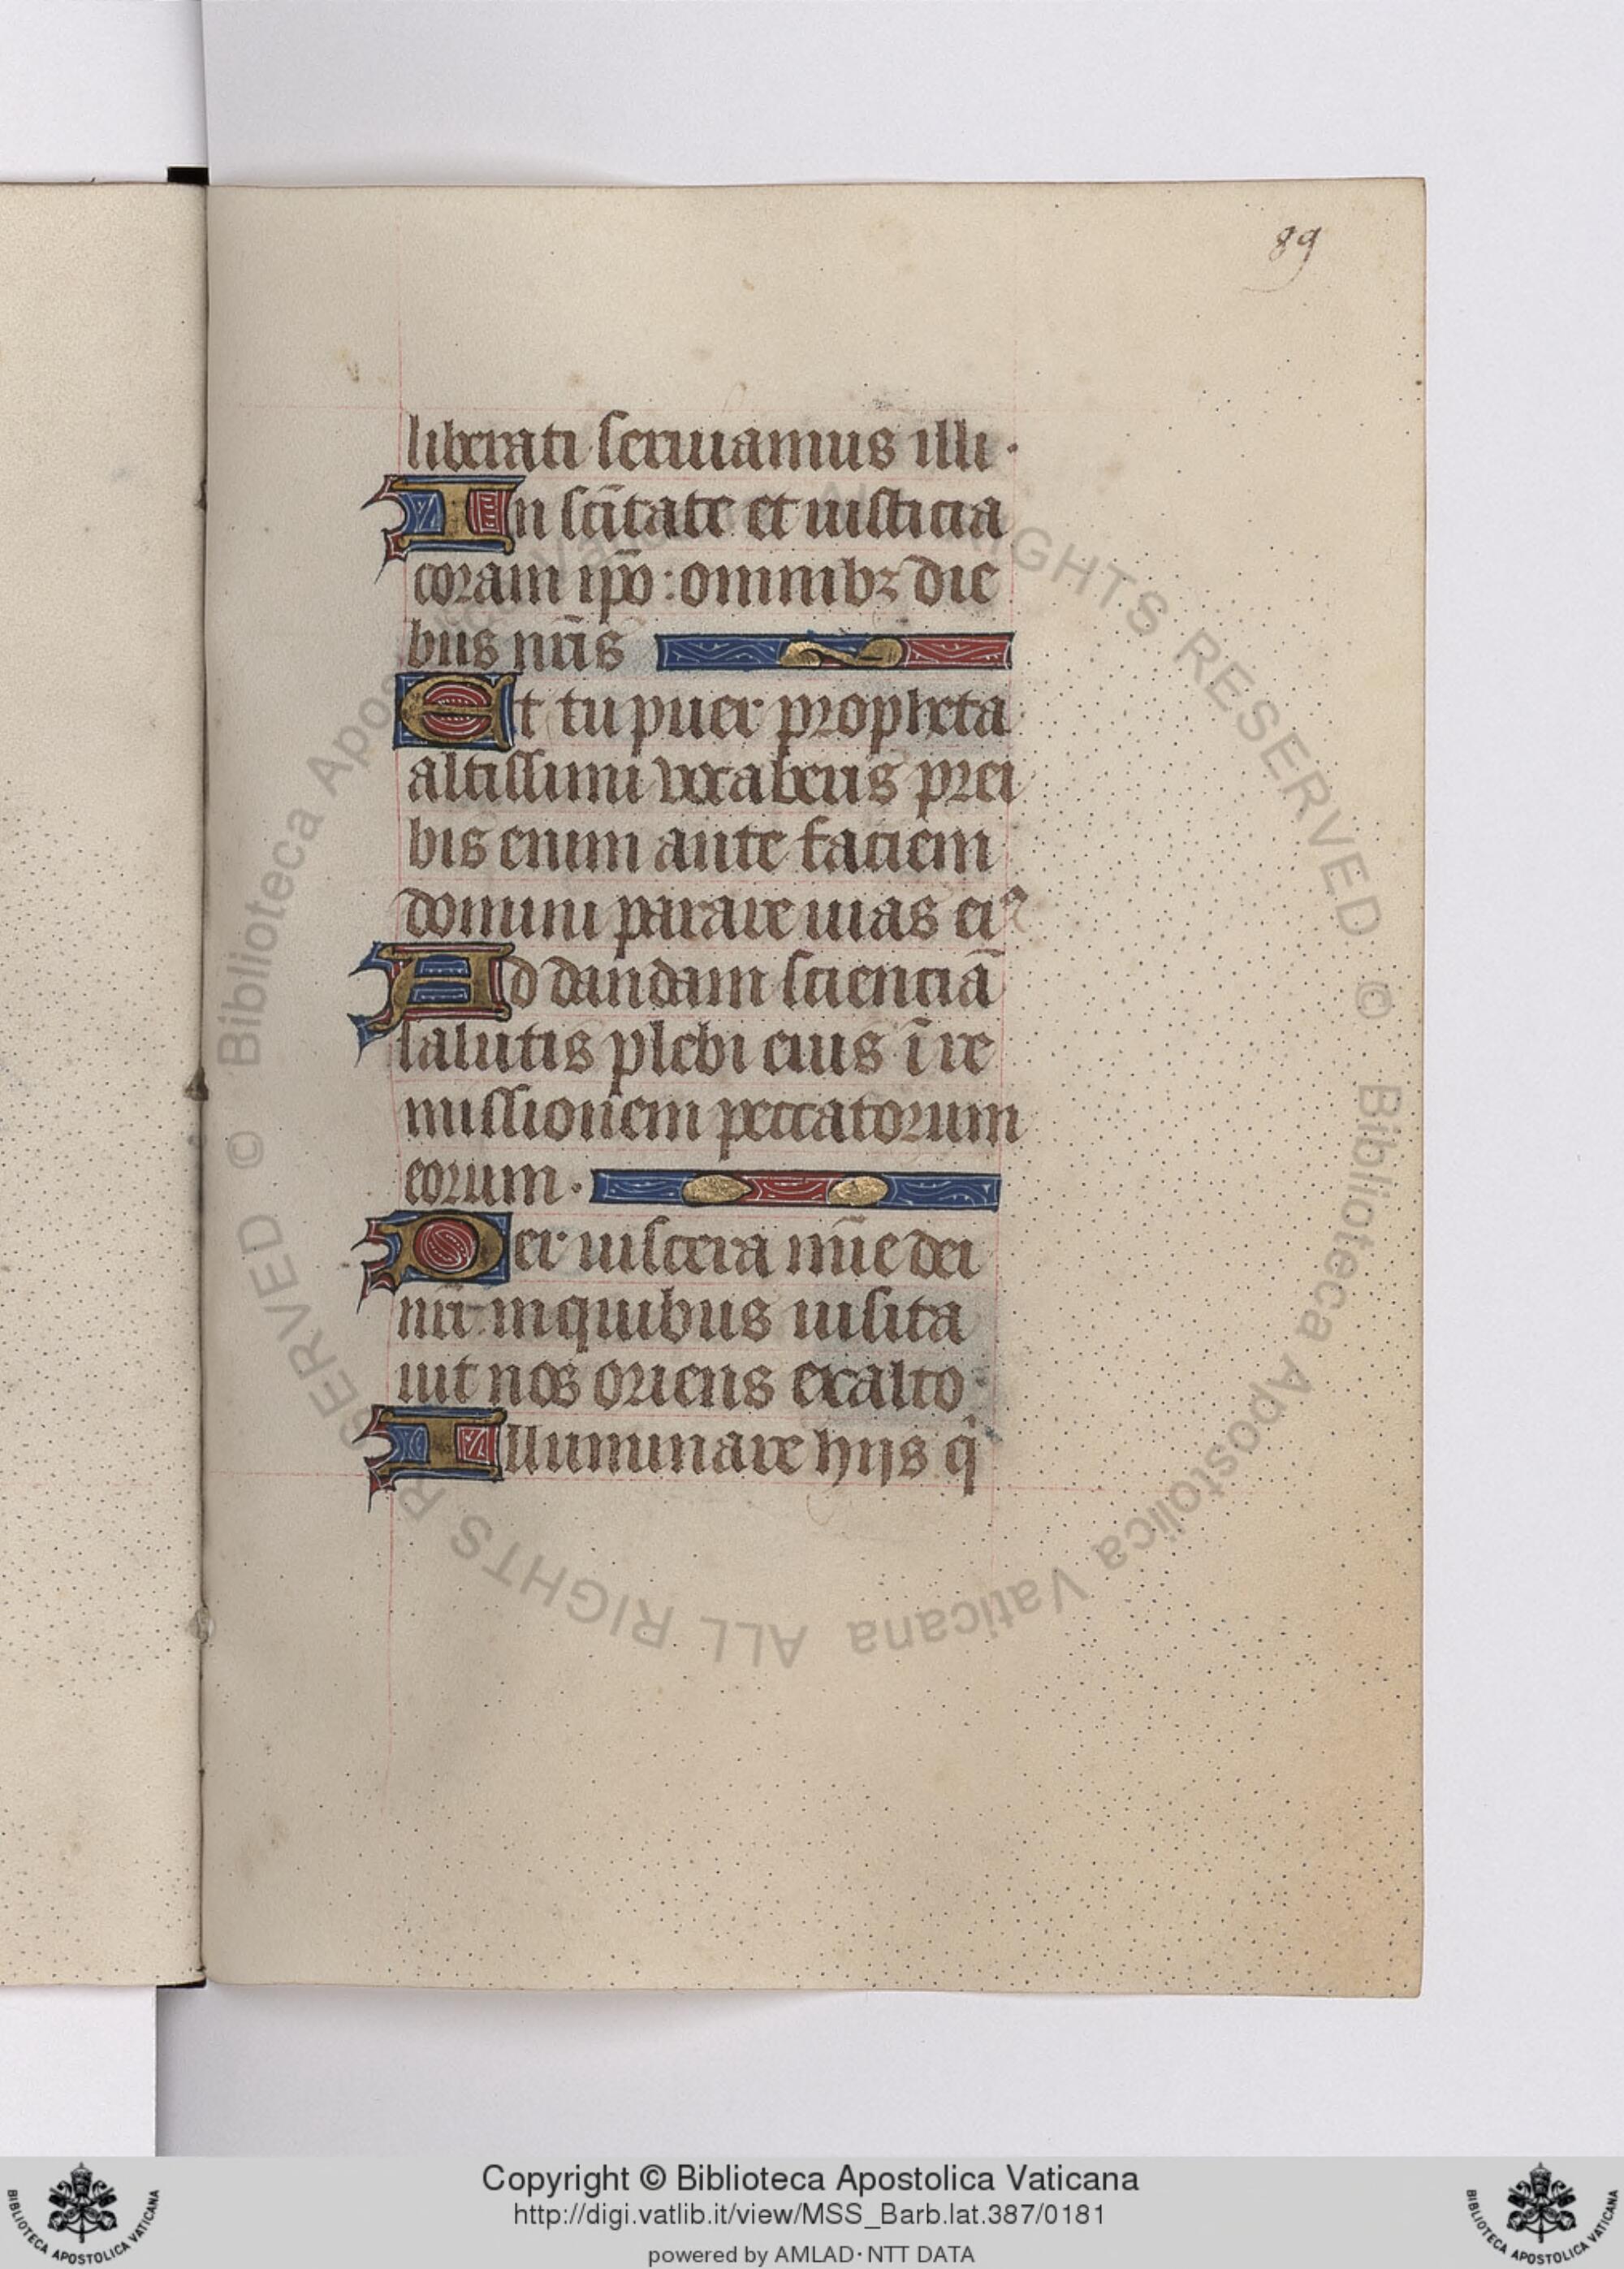 89
liberati seruiamus illi.
In sc̄itate et iusticia
coram ip̄o: omnibꝫ die
bus nr̄is
Et tu puer propheta
altissimi vocaberis prei
bis enim ante faciem
domini parare uias eiꝰ
Ad dandam scienciā
salutis plebi eius ī re
missionem peccatorum
eorum.
Per uiscera mīe dei
nr̄i in quibus uisita
uit nos oriens ex alto
Illuminare hijs q̇
© Biblioteca Apostolica Vaticana ALL RIGHTS RESERVED © Biblioteca Apostolica Vaticana ALL RIGHTS RESERVED
Copyright © Biblioteca Apostolica Vaticana
http://digi.vatlib.it/view/MSS_Barb.lat.387/0181
powered by AMLAD·NTT DATA
BIBLIOTECA APOSTOLICA VATICANA
BIBLIOTECA APOSTOLICA VATICANA